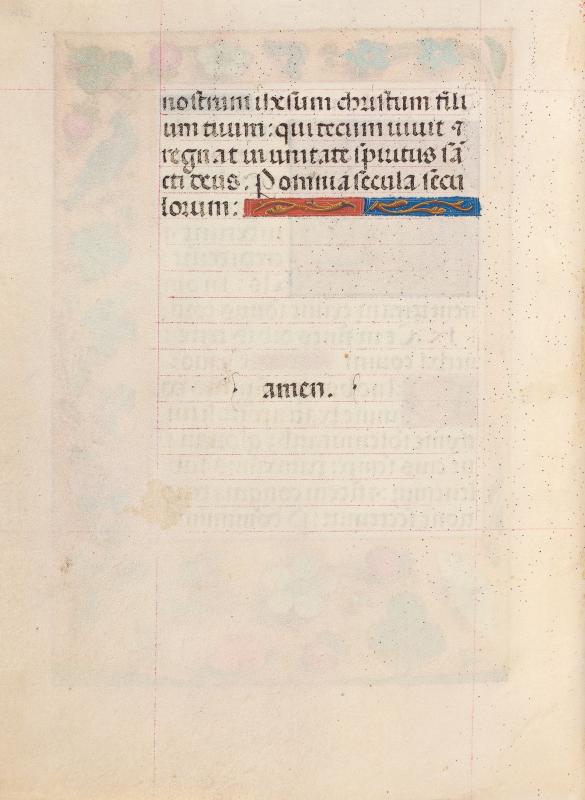 nostrum ihesum christum fili
um tuum: qui tecum uiuit ⁊
regnat in unitate spiritus sā
cti deus: P omnia secula secu
lorum:
amen.